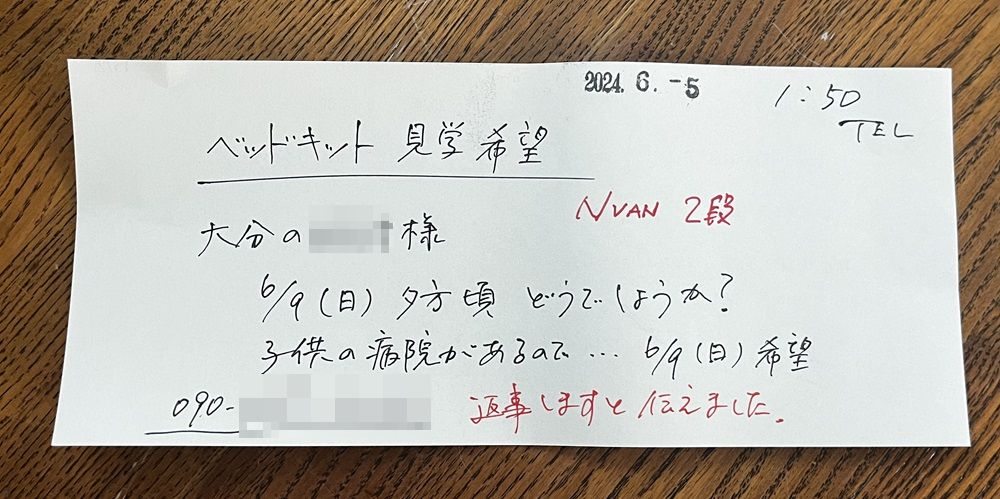 2024. 6. -5
1:50
TEL
ベッドキット 見学希望
NVAN 2段
大分の 様
6/9(日)夕方頃 どうでしょうか?
子供の病院があるので… 6/9(日)希望
090-
返事しますと伝えました.